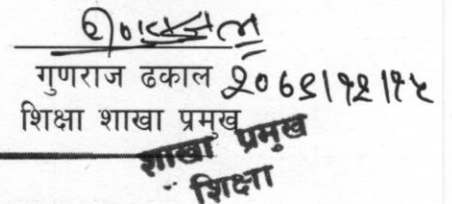 गुणराज ढकाल २०६९।१२।१५
शिक्षा शाखा प्रमुख
शाखा प्रमुख
शिक्षा